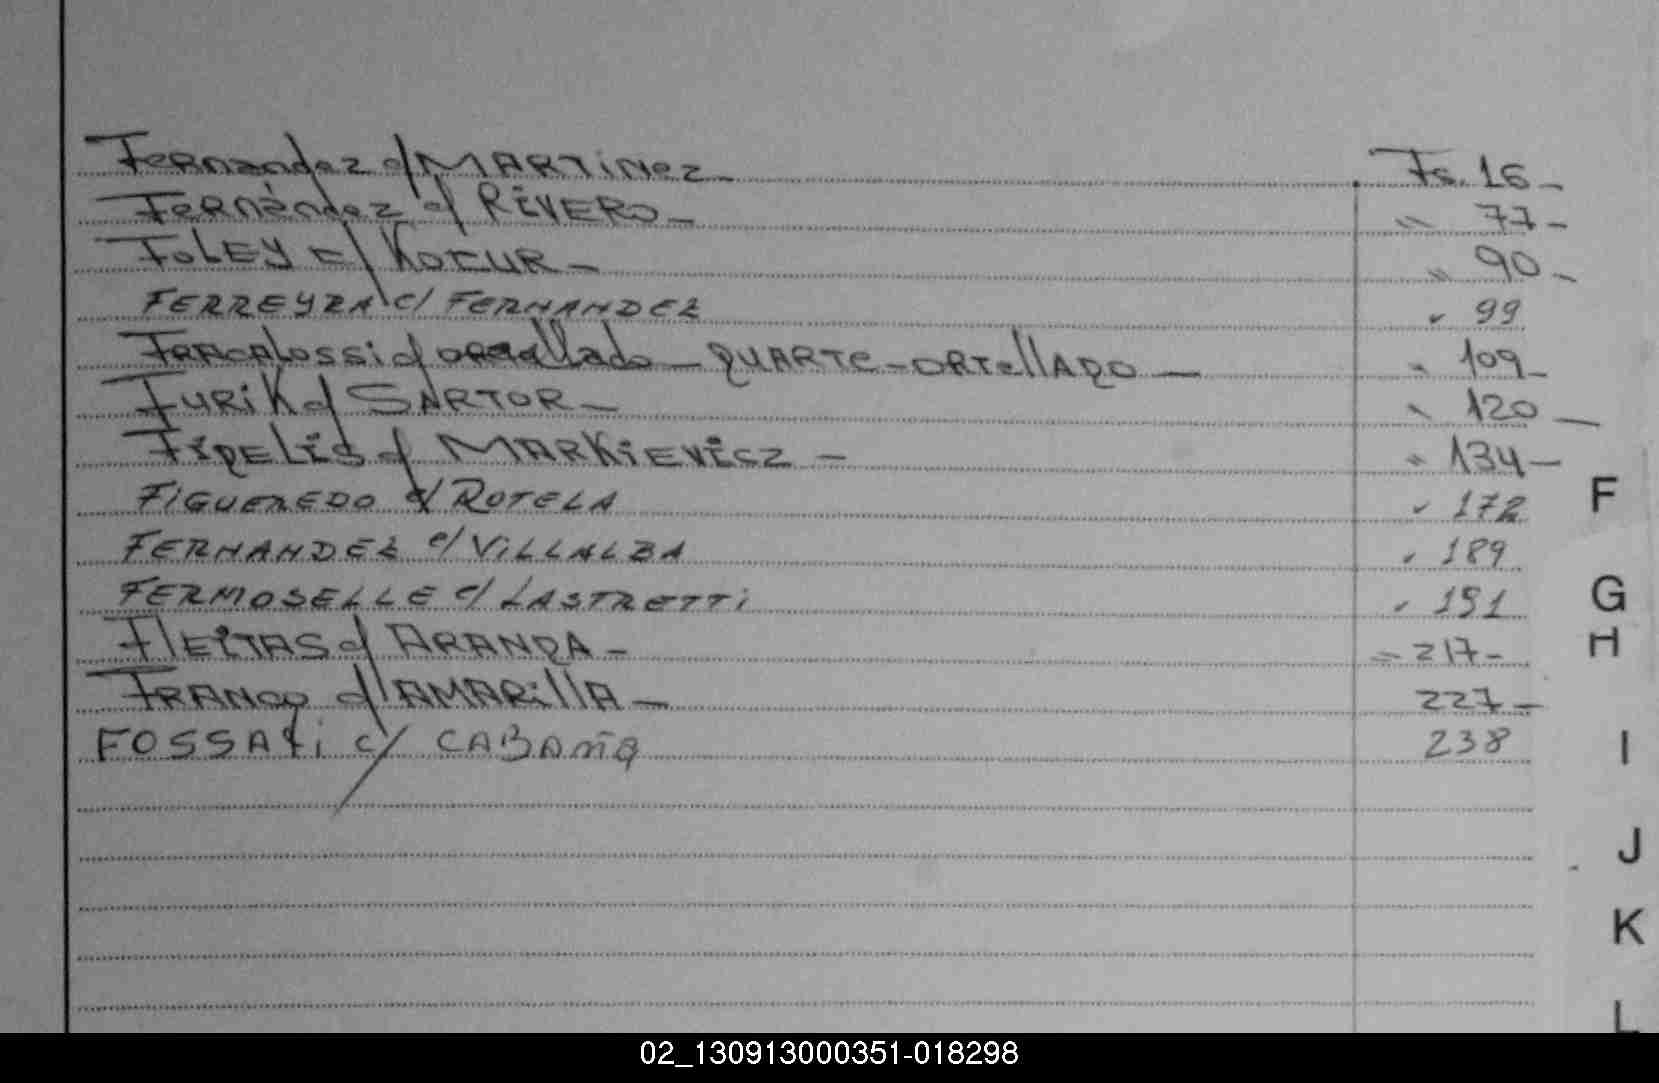 Fernandez c/ MARTiNez - Fs. 16 -
Fernández c/ RiVERO - " 77 -
FoLEY c/ KOCUR - " 90 -
FERREYRA c/ FERNANDEZ " 99
c/ QUARTE - ORTellADO - " 109 -
FURiK c/ SARTOR - " 120 -
FidELis c/ MARKiEVicz - " 134 -
FiGUEREDO c/ ROTELA " 172
FERNANDEZ c/ ViLLALBA " 189
FERMOSELLE c/ LASTRETTi " 191
FlEiTAS c/ ARANDA - " 217 -
FRANCO c/ AMARillA - 227 -
FOSSATi c/ CABAÑA 238
F
G
H
I
J
K
L
02_130913000351-018298